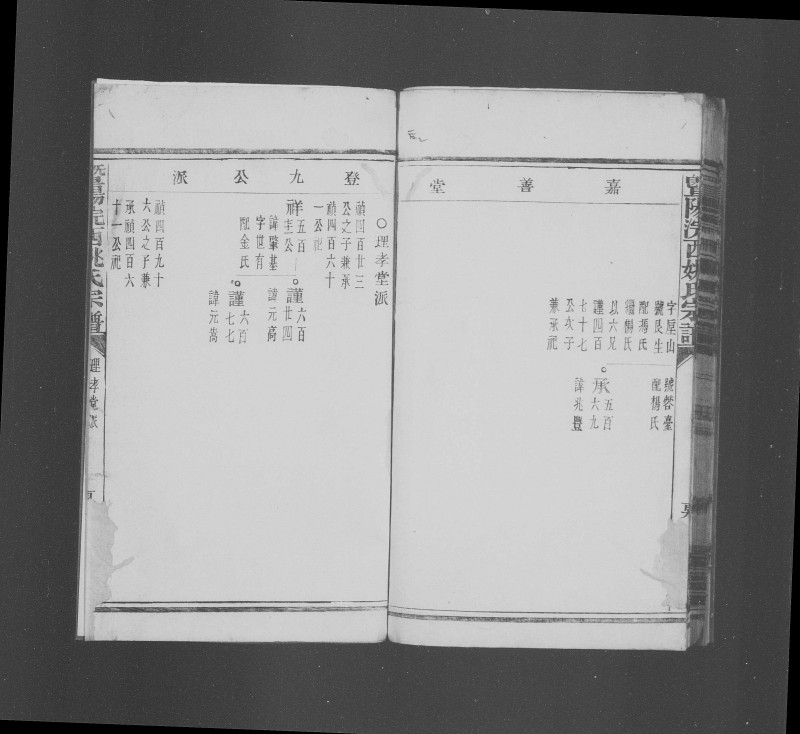 嘉善堂
字屋山
號良生
配馮氏
繼楊氏
以六兄
謹四百
七十七
公次子
兼承祀
號蓉臺
配楊氏
承五百六九
諱兆豐
登九公派
○理孝堂派
禎四百廿三
公之子兼承
禎四百六十
一公祀
祥五百
圭公
諱肇基
字世有
配金氏
謹六百廿四
諱元高
謹六百七七
諱元嵩
禎四百九十
六公之子兼
承禎四百六
十一公祀
理孝堂派